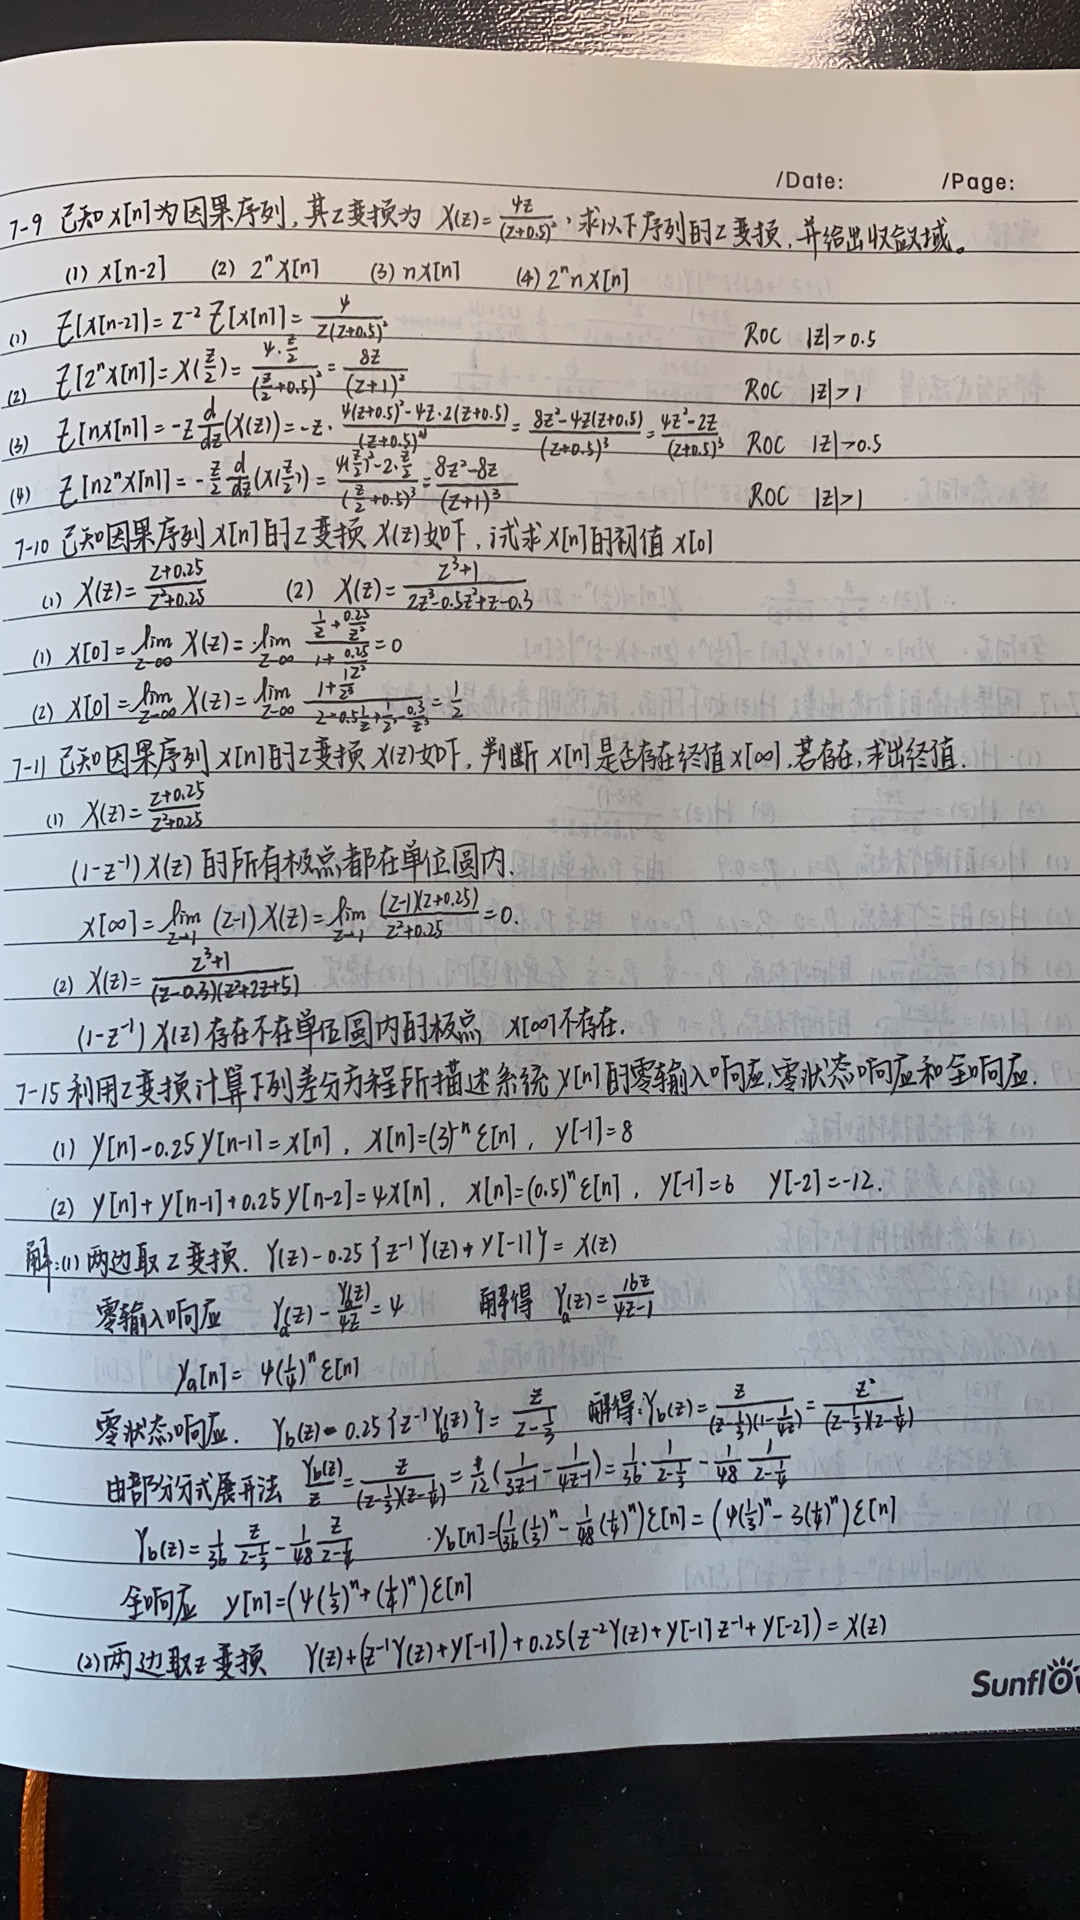 /Date: /Page:
7-9 已知x[n]为因果序列,其Z变换为 X(z)=4z/(z+0.5)²,求以下序列的Z变换,并给出收敛域。
(1) x[n-2] (2) 2ⁿx[n] (3) nx[n] (4) 2ⁿnx[n]
(1) Z[x[n-2]]=z⁻² Z[x[n]]=4/(z(z+0.5)²) ROC |z|>0.5
(2) Z[2ⁿx[n]]=X(z/2)=(4·z/2)/(z/2+0.5)²=8z/(z+1)² ROC |z|>1
(3) Z[nx[n]]=-z d/dz(X(z))=-z·(4(z+0.5)²-4z·2(z+0.5))/(z+0.5)⁴=(8z²-4z(z+0.5))/(z+0.5)³=(4z²-2z)/(z+0.5)³ ROC |z|>0.5
(4) Z[n2ⁿx[n]]=-z/2 d/dz(X(z/2))=(4(z/2)²-2·z/2)/(z/2+0.5)³=(8z²-8z)/(z+1)³ ROC |z|>1
7-10 已知因果序列x[n]的Z变换X(z)如下,试求x[n]的初值x[0]
(1) X(z)=(z+0.25)/(z²+0.25) (2) X(z)=(z³+1)/(2z³-0.5z²+z-0.3)
(1) x[0]=lim z→∞ X(z)=lim z→∞ (1/z+0.25/z²)/(1+0.25/z²)=0
(2) x[0]=lim z→∞ X(z)=lim z→∞ (1+1/z³)/(2-0.5 1/z+1/z²-0.3/z³)=1/2
7-11 已知因果序列x[n]的Z变换X(z)如下,判断x[n]是否存在终值x[∞],若存在,求出终值.
(1) X(z)=(z+0.25)/(z²+0.25)
(1-z⁻¹)X(z)的所有极点都在单位圆内.
x[∞]=lim z→1 (z-1)X(z)=lim z→1 (z-1)(z+0.25)/(z²+0.25)=0.
(2) X(z)=(z³+1)/((z-0.3)(z²+2z+5))
(1-z⁻¹)X(z)存在不在单位圆内的极点 x[∞]不存在.
7-15 利用Z变换计算下列差分方程所描述系统y[n]的零输入响应,零状态响应和全响应.
(1) y[n]-0.25y[n-1]=x[n], x[n]=(3)⁻ⁿε[n], y[-1]=8
(2) y[n]+y[n-1]+0.25y[n-2]=4x[n], x[n]=(0.5)ⁿε[n], y[-1]=6 y[-2]=-12.
解:(1) 两边取Z变换. Y(z)-0.25{z⁻¹Y(z)+y[-1]}=X(z)
零输入响应 Ya(z)-Ya(z)/4z=4 解得 Ya(z)=16z/(4z-1)
ya[n]=4(1/4)ⁿε[n]
零状态响应. Yb(z)-0.25{z⁻¹Yb(z)}=z/(z-1/3) 解得:Yb(z)=z/((z-1/3)(1-1/4z))=z²/((z-1/3)(z-1/4))
由部分分式展开法 Yb(z)/z=z/((z-1/3)(z-1/4))=1/12(1/(3z-1)-1/(4z-1))=1/36·1/(z-1/3)-1/48 1/(z-1/4)
Yb(z)=1/36 z/(z-1/3)-1/48 z/(z-1/4) yb[n]=(1/36(1/3)ⁿ-1/48(1/4)ⁿ)ε[n]=(4(1/3)ⁿ-3(1/4)ⁿ)ε[n]
全响应 y[n]=(4(1/3)ⁿ+(1/4)ⁿ)ε[n]
(2) 两边取z变换 Y(z)+(z⁻¹Y(z)+y[-1])+0.25(z⁻²Y(z)+y[-1]z⁻¹+y[-2])=X(z)